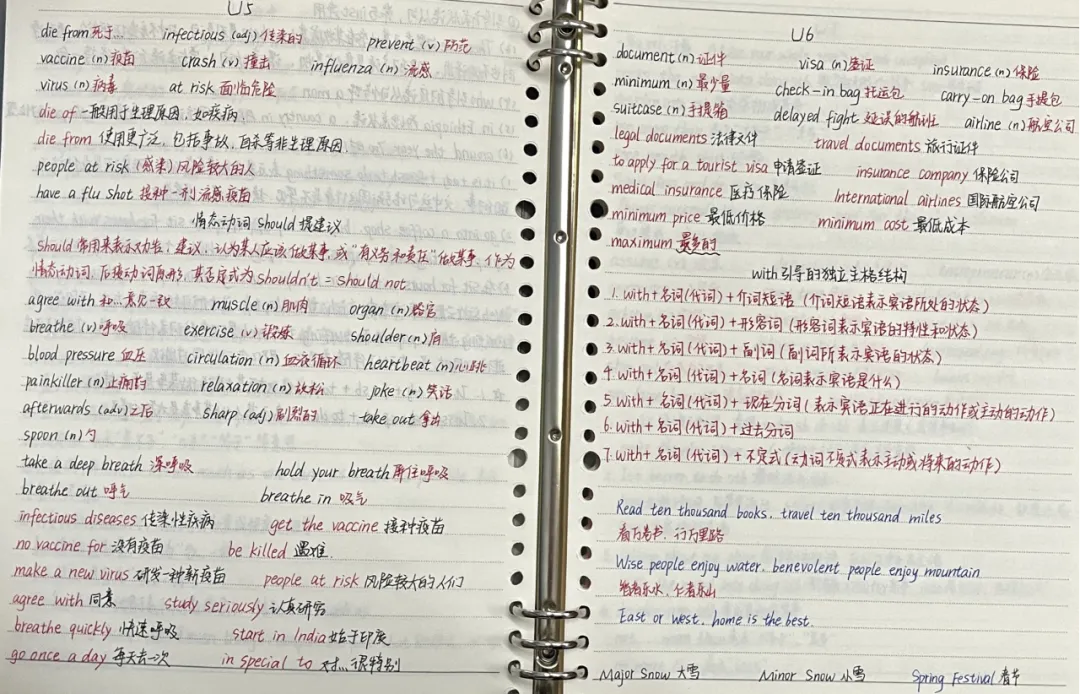 U5
die from 死于... infectious (adj) 传染的 prevent (v) 防范
vaccine (n) 疫苗 crash (v) 撞击 influenza (n) 流感
virus (n) 病毒 at risk 面临危险
die of 一般用于生理原因,如疾病
die from 使用更广泛,包括事故,自杀等非生理原因
people at risk (感染)风险较大的人
have a flu shot 接种一剂流感疫苗
情态动词 should 提建议
should 常用来表示劝告,建议,认为某人应该做某事,或"有义务和责任"做某事,作为
情态动词,后接动词原形,其否定式为 shouldn't = should not
agree with 和...意见一致 muscle (n) 肌肉 organ (n) 器官
breathe (v) 呼吸 exercise (v) 锻炼 shoulder (n) 肩
blood pressure 血压 circulation (n) 血液循环 heartbeat (n) 心跳
painkiller (n) 止痛药 relaxation (n) 放松 joke (n) 笑话
afterwards (adv) 之后 sharp (adj) 剧烈的 take out 拿出
spoon (n) 勺
take a deep breath 深呼吸 hold your breath 屏住呼吸
breathe out 呼气 breathe in 吸气
infectious diseases 传染性疾病 get the vaccine 接种疫苗
no vaccine for 没有疫苗 be killed 遇难
make a new virus 研发一种新疫苗 people at risk 风险较大的人们
agree with 同意 study seriously 认真研究
breathe quickly 快速呼吸 start in India 始于印度
go once a day 每天去一次 in special to 对...很特别
U6
document (n) 证件 visa (n) 签证 insurance (n) 保险
minimum (n) 最少量 check-in bag 托运包 carry-on bag 手提包
suitcase (n) 手提箱 delayed fight 延误的航班 airline (n) 航空公司
legal documents 法律文件 travel documents 旅行证件
to apply for a tourist visa 申请签证 insurance company 保险公司
medical insurance 医疗保险 International airlines 国际航空公司
minimum price 最低价格 minimum cost 最低成本
maximum 最多的
with 引导的独立主格结构
1. with+名词(代词)+介词短语 (介词短语表示宾语所处的状态)
2. with+名词(代词)+形容词 (形容词表示宾语的特性和状态)
3. with+名词(代词)+副词 (副词所表示宾语的状态)
4. with+名词(代词)+名词 (名词表示宾语是什么)
5. with+名词(代词)+现在分词 (表示宾语正在进行的动作或主动的动作)
6. with+名词(代词)+过去分词
7. with+名词(代词)+不定式 (动词不定式表示主动或将来的动作)
Read ten thousand books, travel ten thousand miles
看万卷书,行万里路
Wise people enjoy water, benevolent people enjoy mountain
智者乐水,仁者乐山
East or west, home is the best.
Major Snow 大雪 Minor Snow 小雪 Spring Festival 春节